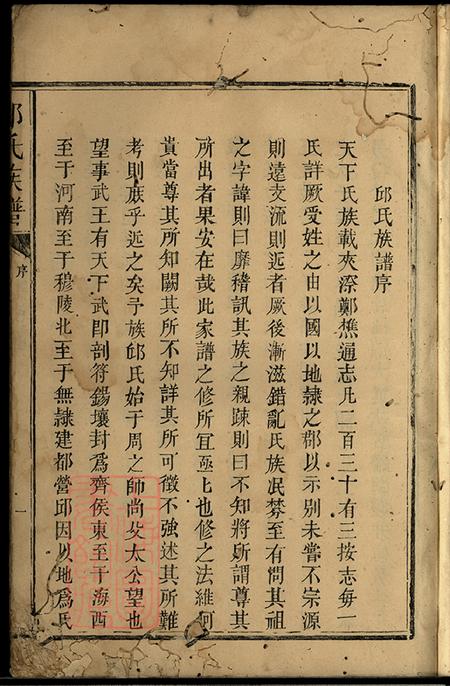 邱氏族譜序
天下氏族載夾漈鄭樵通志凡二百三十有三按志每一
氏詳厥受姓之由以國以地隷之郡以示別未嘗不宗源
則遠支流則近者厥後漸滋錯亂氏族泯棼至有問其祖
之字諱則曰靡稽訊其族之親疎則曰不知將所謂尊其
所出者果安在哉此家譜之修所宜亟亟也修之法維何
貴當尊其所知闕其所不知詳其所可徵不強述其所難
考則庶乎近之矣予族邱氏始于周之師尚父太公望也
望事武王有天下武即剖符錫壤封為齊侯東至于海西
至于河南至于穆陵北至于無隷建都營邱因以地為氏
邱氏族譜
序
一